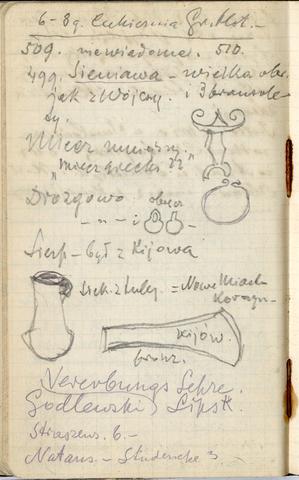 6-8g. Cukiernia Gr. Hot.-
509. niewiadome. 510.
499. Sieniawa - wielka obr.
jak z Wójcy. i 3 bransole-
ty.
Miecz mniejszy.
"miecz grecki"
Drozgowo obrącz
- „ - i
Sierp - był z Kijowa
Siek. z tuleją = Nowe Miasto
Korczyn-
Kijów.
bronz.
Vererbungs Lehre.
Godlewski Lipsk.
Straszews. 6.-
Natans.- Studencka 3.